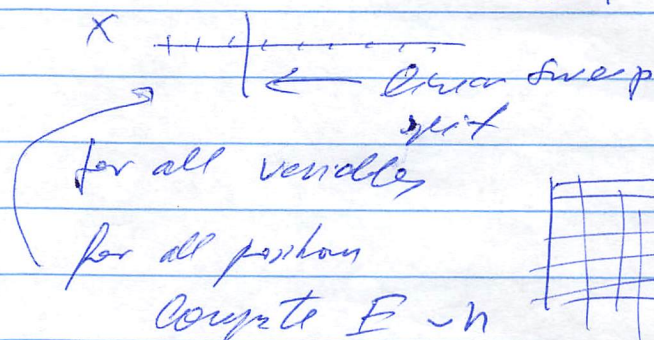 X
linear sweep
split
for all variables
for all positions
Compute E ~ n